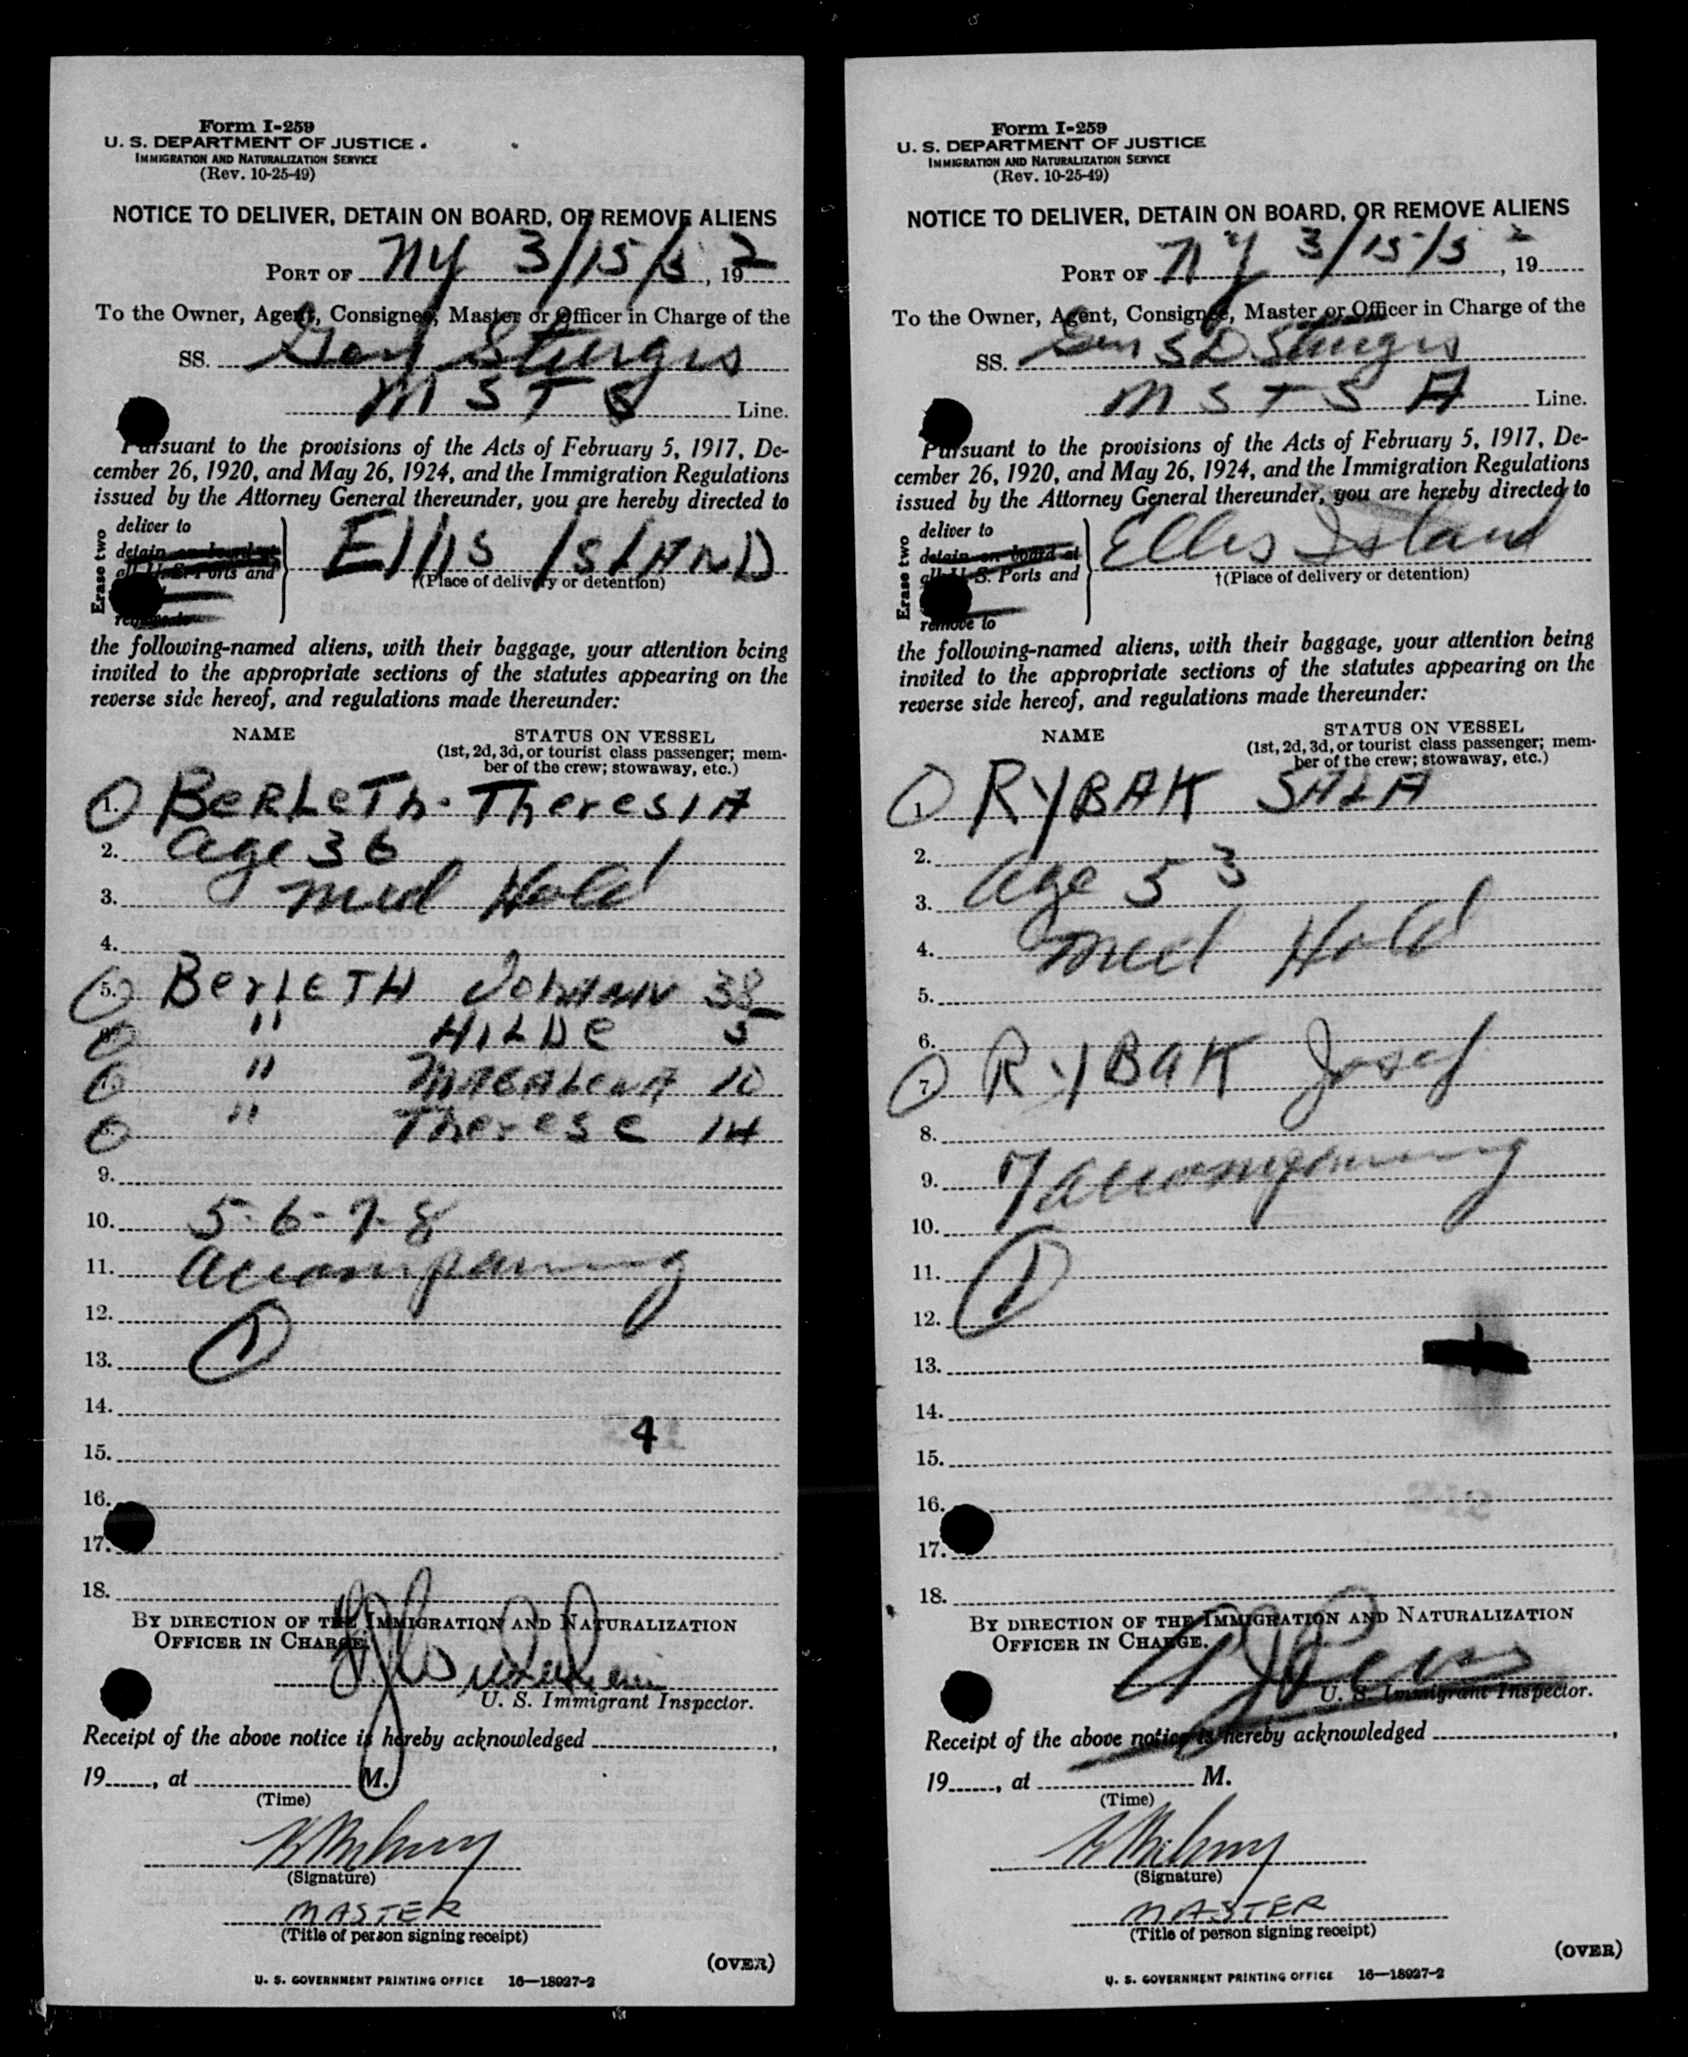 Form I-259
U. S. DEPARTMENT OF JUSTICE
IMMIGRATION AND NATURALIZATION SERVICE
(Rev. 10-25-49)
NOTICE TO DELIVER, DETAIN ON BOARD, OR REMOVE ALIENS
PORT OF NY 3/15/5, 192
To the Owner, Agent, Consignee, Master or Officer in Charge of the
SS. Gen Sturgis
M S T S Line.
Pursuant to the provisions of the Acts of February 5, 1917, De-
cember 26, 1920, and May 26, 1924, and the Immigration Regulations
issued by the Attorney General thereunder, you are hereby directed to
Erase two
deliver to
detain on board at
all U. S. Ports and
remove to
Ellis ISLAND
†(Place of delivery or detention)
the following-named aliens, with their baggage, your attention being
invited to the appropriate sections of the statutes appearing on the
reverse side hereof, and regulations made thereunder:
NAME STATUS ON VESSEL
(1st, 2d, 3d, or tourist class passenger; mem-
ber of the crew; stowaway, etc.)
1. BERLETh. TheresIA
2. age 36
3. Med Hold
4.
5. BerLeTH JOHANN 38
" HILDe 5
" MAGALENA 10
" Therese 14
9.
10. 5-6-7-8
11. accompaning
12.
13. 1
14.
4
15.
16.
17.
18.
BY DIRECTION OF THE IMMIGRATION AND NATURALIZATION
OFFICER IN CHARGE.
U. S. Immigrant Inspector.
Receipt of the above notice is hereby acknowledged
19, at M.
(Time)
(Signature)
MASTER
(Title of person signing receipt)
(OVER)
U. S. GOVERNMENT PRINTING OFFICE 16—18927-2
Form I-259
U. S. DEPARTMENT OF JUSTICE
IMMIGRATION AND NATURALIZATION SERVICE
(Rev. 10-25-49)
NOTICE TO DELIVER, DETAIN ON BOARD, OR REMOVE ALIENS
PORT OF NY 3/15/52, 19
To the Owner, Agent, Consignee, Master or Officer in Charge of the
SS. Gen S D Sturgis
M S T S A Line.
Pursuant to the provisions of the Acts of February 5, 1917, De-
cember 26, 1920, and May 26, 1924, and the Immigration Regulations
issued by the Attorney General thereunder, you are hereby directed to
Erase two
deliver to
detain on board at
all U. S. Ports and
remove to
Ellis Island
†(Place of delivery or detention)
the following-named aliens, with their baggage, your attention being
invited to the appropriate sections of the statutes appearing on the
reverse side hereof, and regulations made thereunder:
NAME STATUS ON VESSEL
(1st, 2d, 3d, or tourist class passenger; mem-
ber of the crew; stowaway, etc.)
1. RYBAK SALA
2.
3. age 53
4. Med Hold
5.
6.
7. RYBAK Josef
8.
9. 7 accompaning
10.
11. 1
12.
13.
14.
15.
16.
17.
18.
BY DIRECTION OF THE IMMIGRATION AND NATURALIZATION
OFFICER IN CHARGE.
U. S. Immigrant Inspector.
Receipt of the above notice is hereby acknowledged
19, at M.
(Time)
(Signature)
MASTER
(Title of person signing receipt)
(OVER)
U. S. GOVERNMENT PRINTING OFFICE 16—18927-2